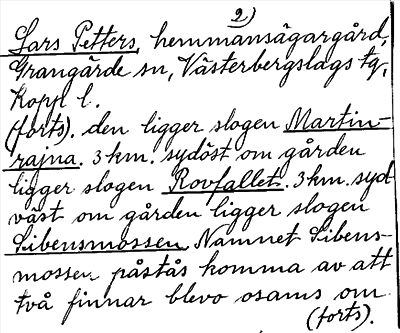 2)
Lars Petters, hemmansägargård,
Grangärde sn, Västerbergslags tg,
Koppl l.
(forts). den ligger slogen Martin-
rajna. 3 km. sydöst om gården
ligger slogen Rovfallet. 3 km. syd
väst om gården ligger slogen
Libensmossen. Namnet Libens-
mossen påstås komma av att
två finnar blevo osams om
(forts).